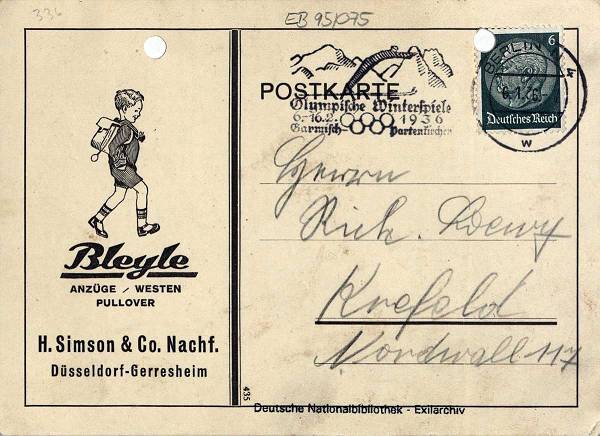 336
EB 95/075
POSTKARTE
Olympische Winterspiele
6.-16.2. 1936
Garmisch- Partenkirchen
BERLIN
W
6
Deutsches Reich
Herrn
Rich. Loewy
Krefeld
Nordwall 117
Bleyle
ANZÜGE / WESTEN
PULLOVER
H. Simson & Co. Nachf.
Düsseldorf-Gerresheim
435
Deutsche Nationalbibliothek - Exilarchiv